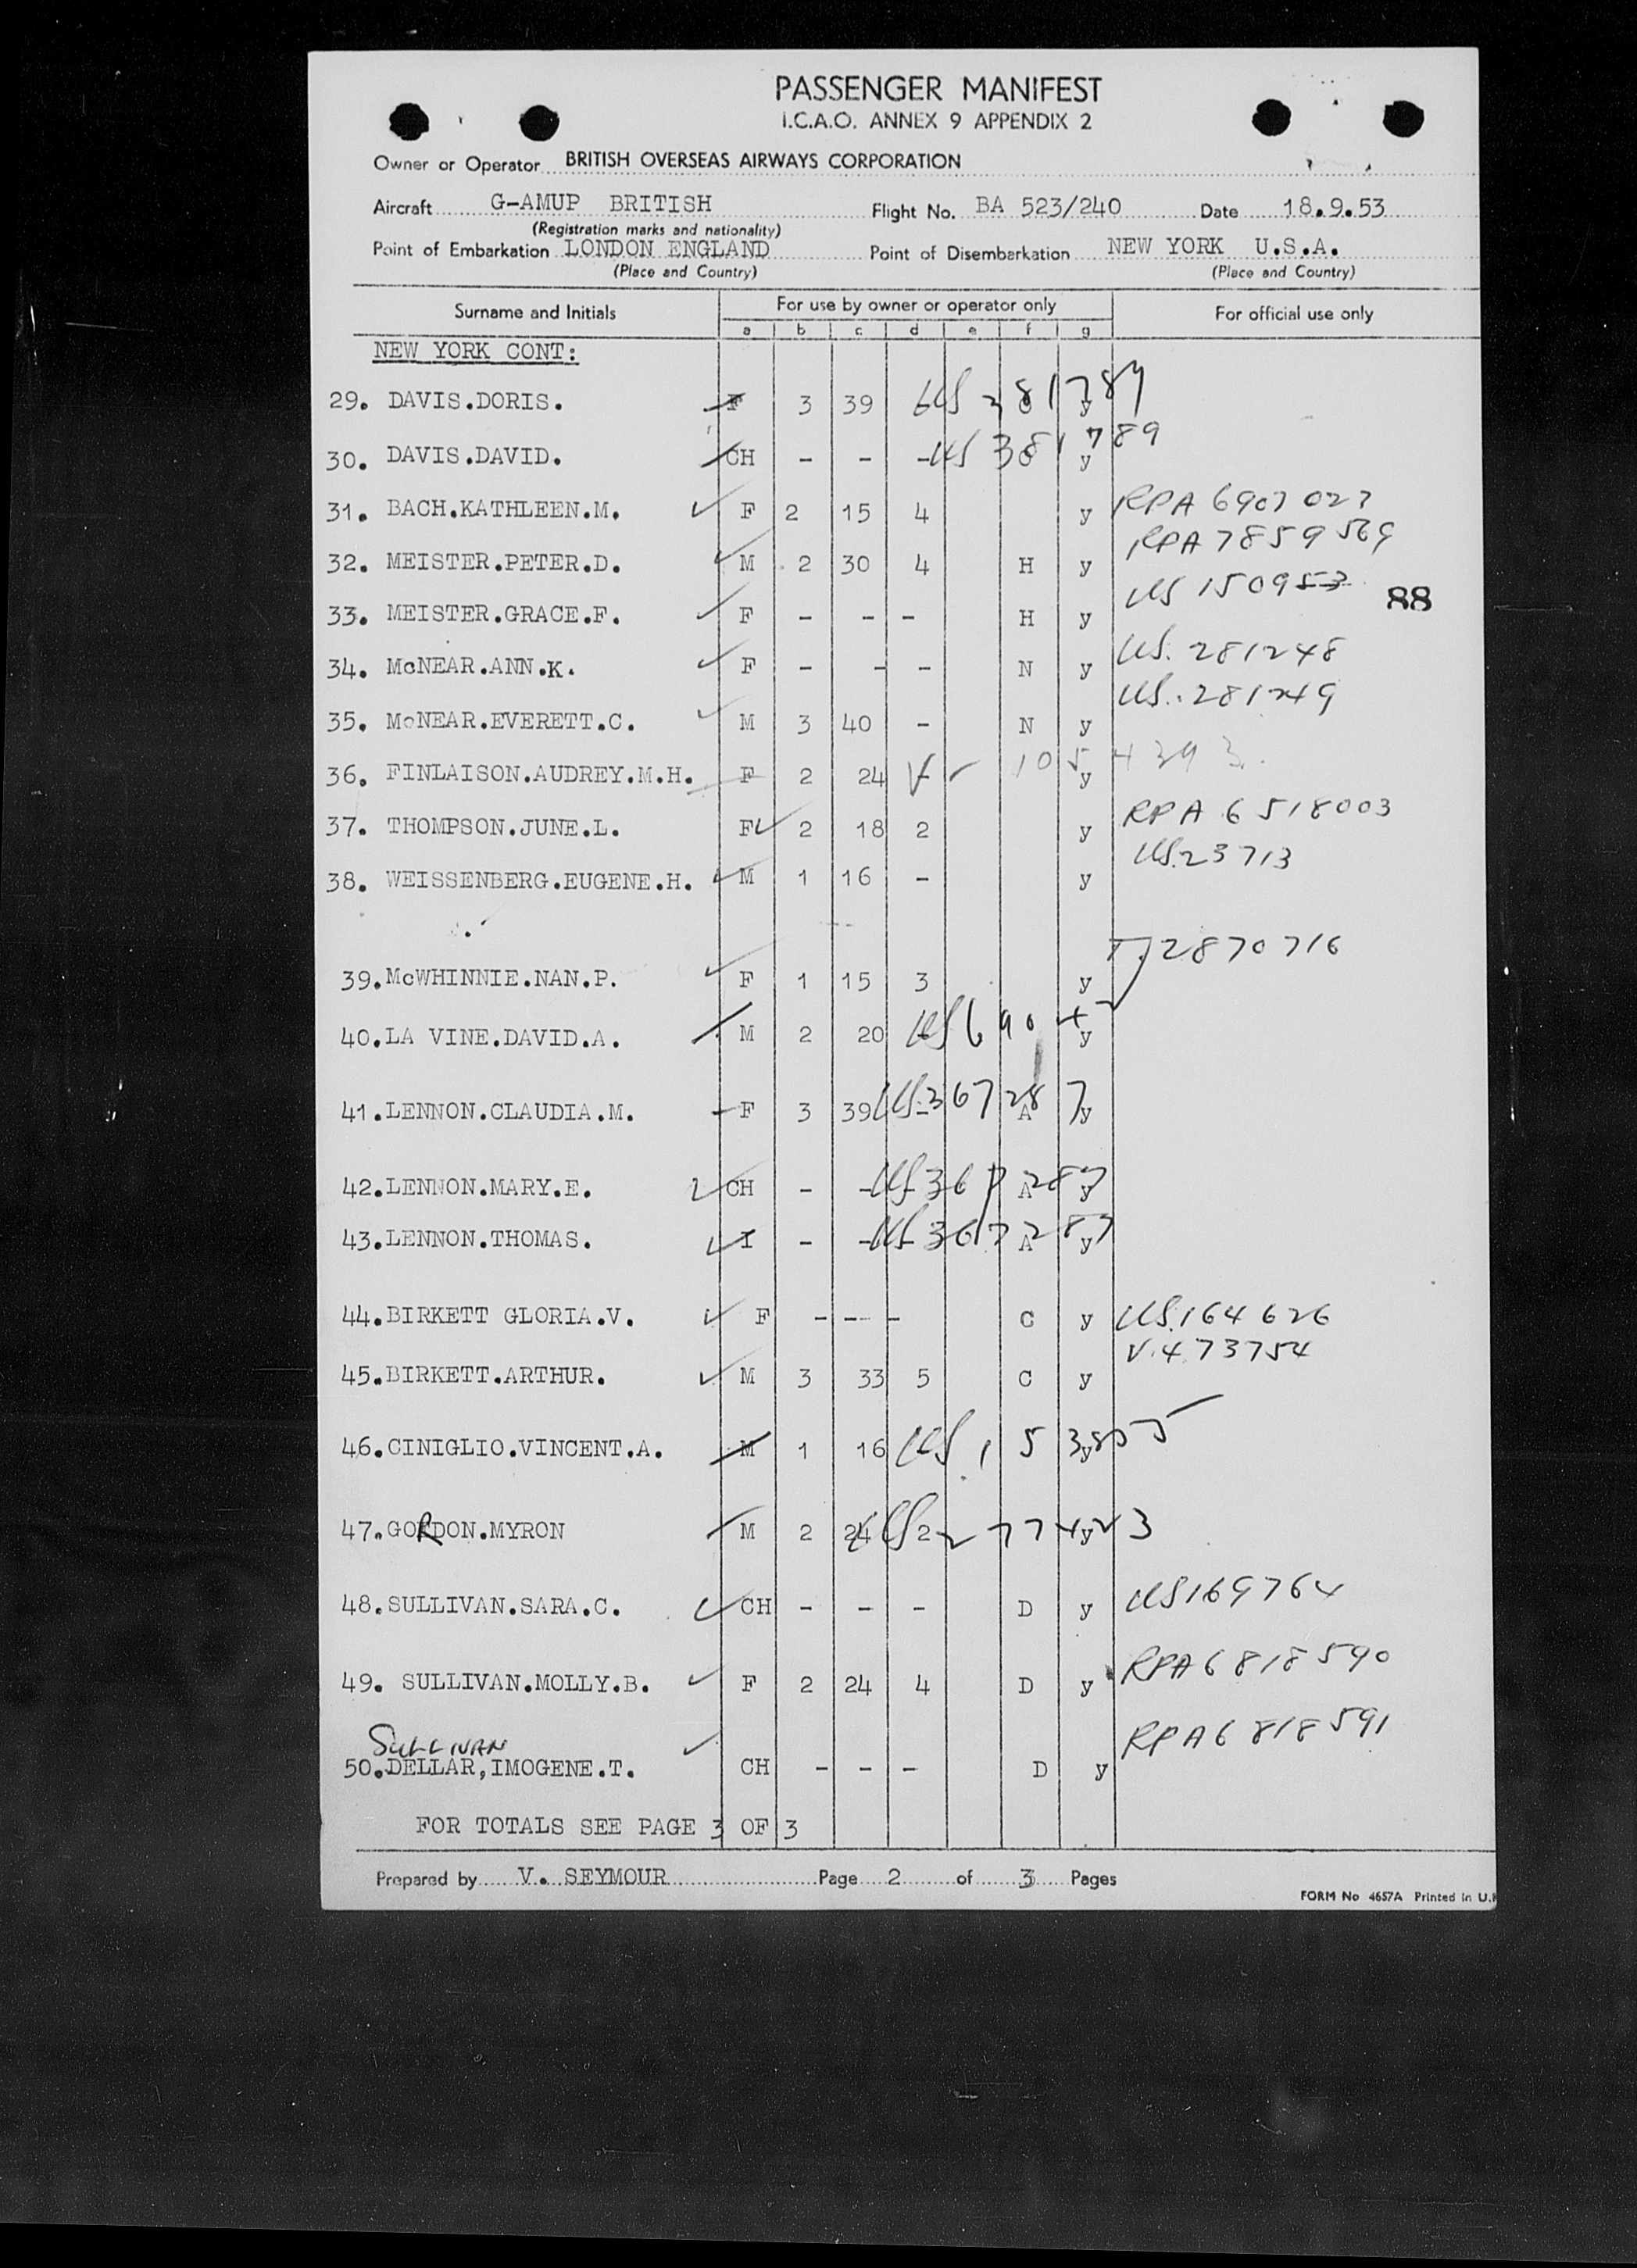 PASSENGER MANIFEST
I.C.A.O. ANNEX 9 APPENDIX 2
Owner or Operator BRITISH OVERSEAS AIRWAYS CORPORATION
Aircraft G-AMUP BRITISH Flight No. BA 523/240 Date 18.9.53
(Registration marks and nationality)
Point of Embarkation LONDON ENGLAND Point of Disembarkation NEW YORK U.S.A.
(Place and Country) (Place and Country)
Surname and Initials For use by owner or operator only For official use only
a b c d e f g
NEW YORK CONT:
29. DAVIS.DORIS. F 3 39 US 381789 y
30. DAVIS.DAVID. CH - - - US 381789 y
31. BACH.KATHLEEN.M. F 2 15 4 y RPA 6907027
32. MEISTER.PETER.D. M 2 30 4 H y RPA 7859569
33. MEISTER.GRACE.F. F - - - H y US 150953
88
34. McNEAR.ANN.K. F - - - N y US. 281248
35. McNEAR.EVERETT.C. M 3 40 - N y US. 281249
36. FINLAISON.AUDREY.M.H. F 2 24 y 1054393
37. THOMPSON.JUNE.L. F 2 18 2 y RPA 6518003
38. WEISSENBERG.EUGENE.H. M 1 16 - y US.23713
39. McWHINNIE.NAN.P. F 1 15 3 y 2870716
40. LA VINE.DAVID.A. M 2 20 US 6904 y
41. LENNON.CLAUDIA.M. F 3 39 - US 367287 A y
42. LENNON.MARY.E. CH - - - US 367287 A y
43. LENNON.THOMAS. I - - - US 367287 A y
44. BIRKETT GLORIA.V. F - - - C y US.164626
45. BIRKETT.ARTHUR. M 3 33 5 C y V.473754
46. CINIGLIO.VINCENT.A. M 1 16 US 153855 y
47. GORDON.MYRON M 2 24 2 US 277423 y
48. SULLIVAN.SARA.C. CH - - - D y US169764
49. SULLIVAN.MOLLY.B. F 2 24 4 D y RPA6818590
SULLIVAN
50. DELLAR,IMOGENE.T. CH - - - D y RPA6818591
FOR TOTALS SEE PAGE 3 OF 3
Prepared by V. SEYMOUR Page 2 of 3 Pages
FORM No 4657A Printed in U.